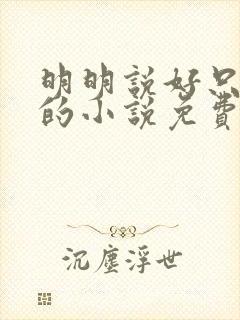 明明說好只
的小說免費
沉塵浮世